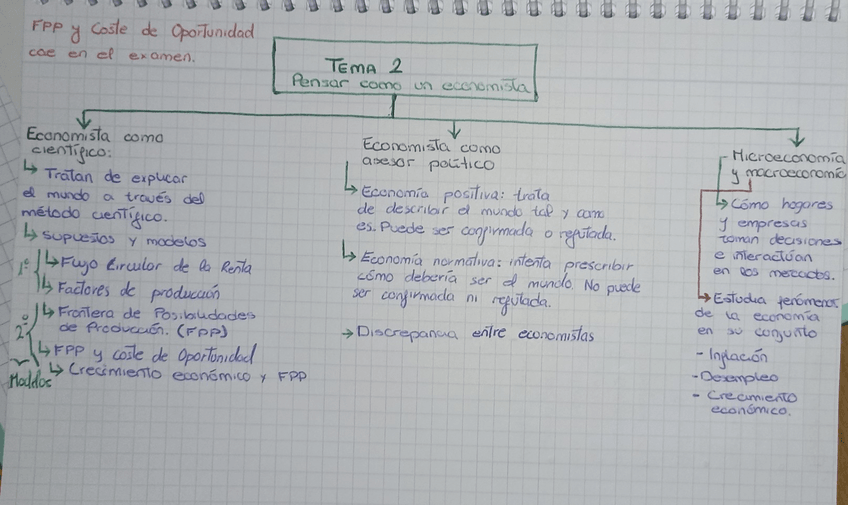 FPP y Coste de Oportunidad
cae en el examen.
TEMA 2
Pensar como un economista
Economista como
científico:
↳ Tratan de explicar
el mundo a través del
método científico.
↳ Supuestos y modelos
1º ↳ Flujo Circular de la Renta
↳ Factores de producción
2º ↳ Frontera de Posibilidades
de Producción. (FPP)
↳ FPP y coste de Oportunidad
Modelos ↳ Crecimiento económico y FPP
Economista como
asesor político
↳ Economía positiva: trata
de describir el mundo tal y como
es. Puede ser confirmada o refutada.
↳ Economía normativa: intenta prescribir
cómo debería ser el mundo. No puede
ser confirmada ni refutada.
→ Discrepancia entre economistas
Microeconomía
y macroeconomía
↳ Cómo hogares
y empresas
toman decisiones
e interactúan
en los mercados.
↳ Estudia fenómenos
de la economía
en su conjunto
- Inflación
- Desempleo
- Crecimiento
económico.